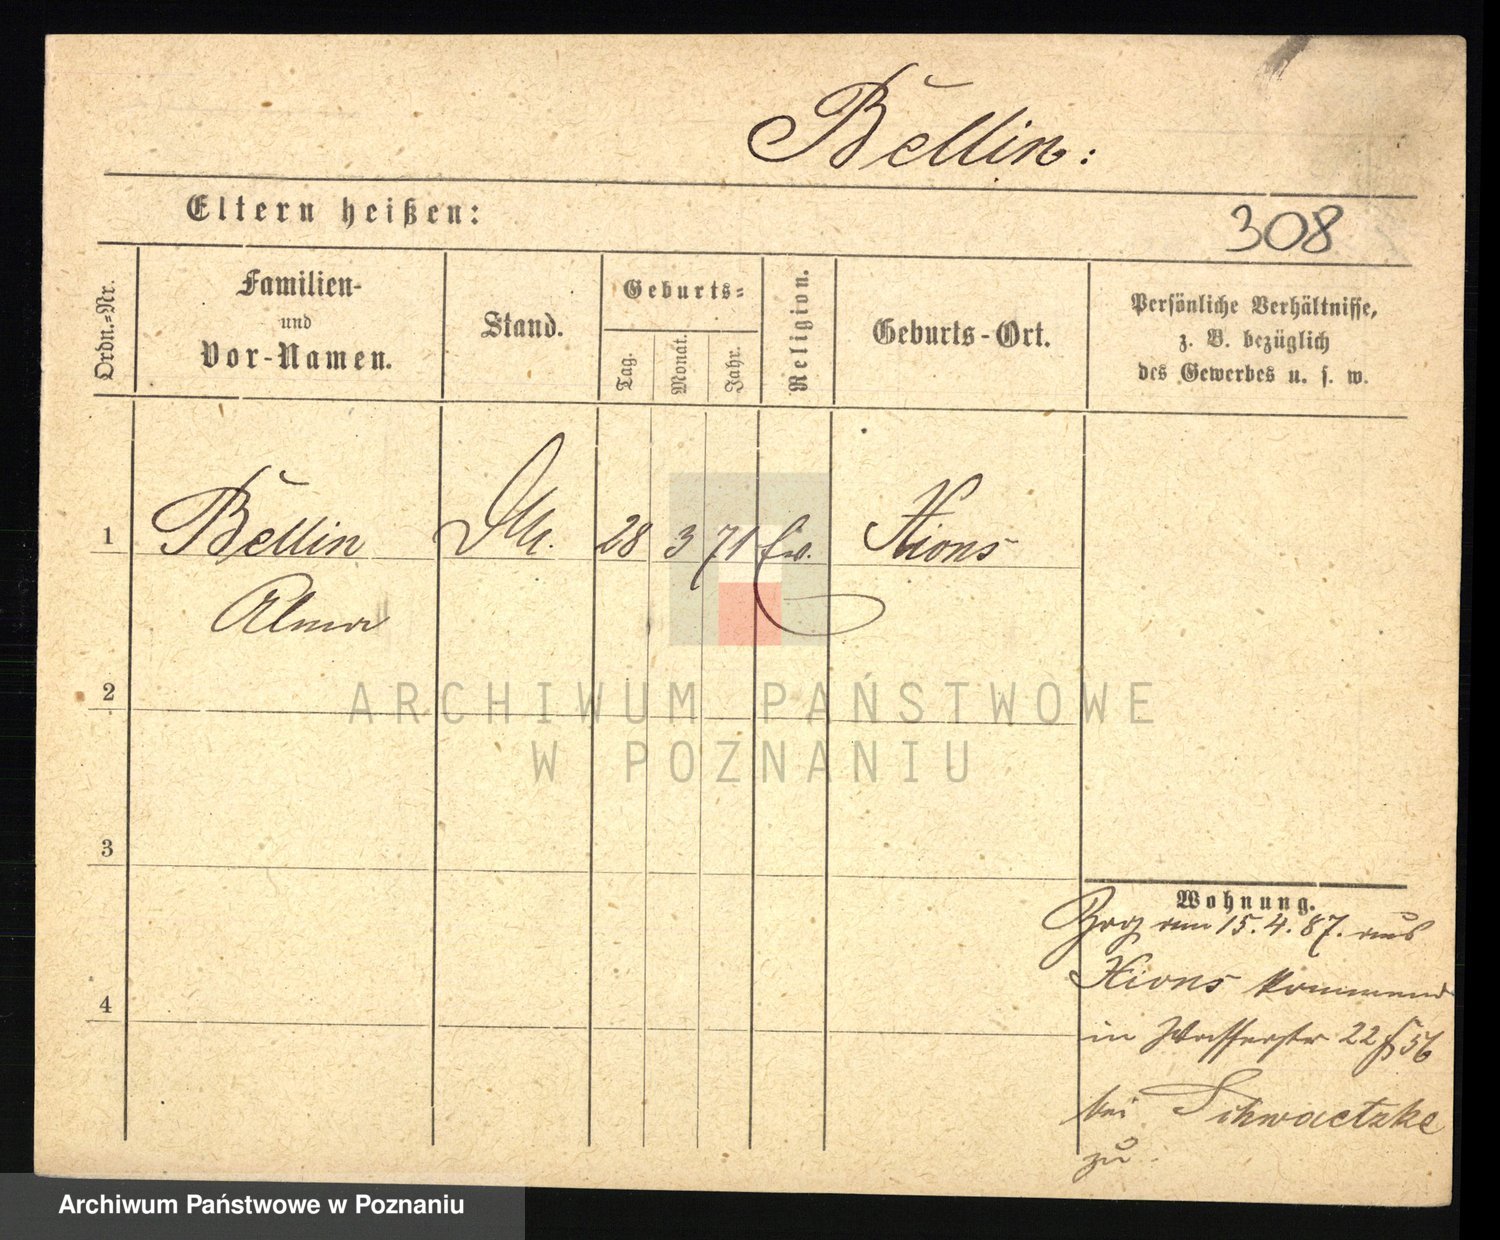 Bellin:
Eltern heißen:
308
Ordn.-Nr.
Familien-
und
Vor-Namen.
Stand.
Geburts-
Tag.
Monat.
Jahr.
Religion.
Geburts-Ort.
Persönliche Verhältnisse,
z. B. bezüglich
des Gewerbes u. s. w.
1
Bellin
28
3
71
ev.
Xions
Alma
2
ARCHIWUM PAŃSTWOWE
W POZNANIU
3
Wohnung.
Zog am 15.4.87. aus
Xions kommend
4
in Wasserstr 22
bei Schwaetzke
zu.
Archiwum Państwowe w Poznaniu